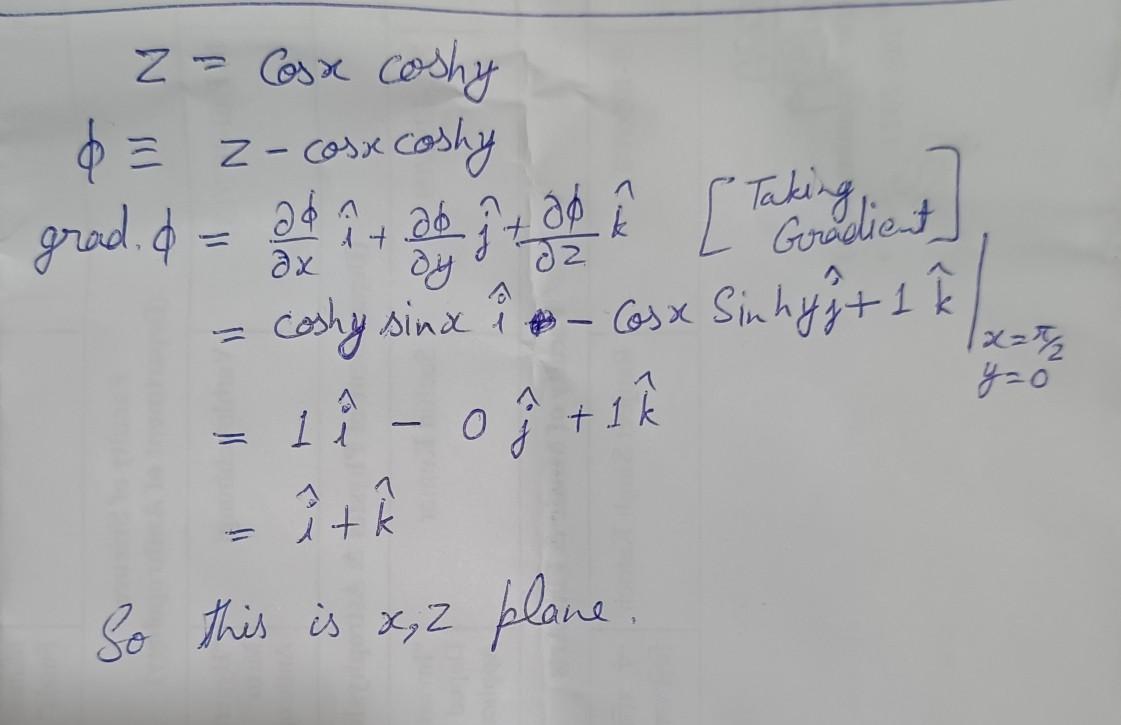 z = Cosx coshy
ϕ ≡ z - cosx coshy
grad. ϕ = ∂ϕ/∂x î + ∂ϕ/∂y ĵ + ∂ϕ/∂z k̂ [Taking Gradient]
= coshy sinx î - Cosx Sinhy ĵ + 1 k̂ | x=π/2 y=0
= 1 î - 0 ĵ + 1 k̂
= î + k̂
So this is x,z plane.